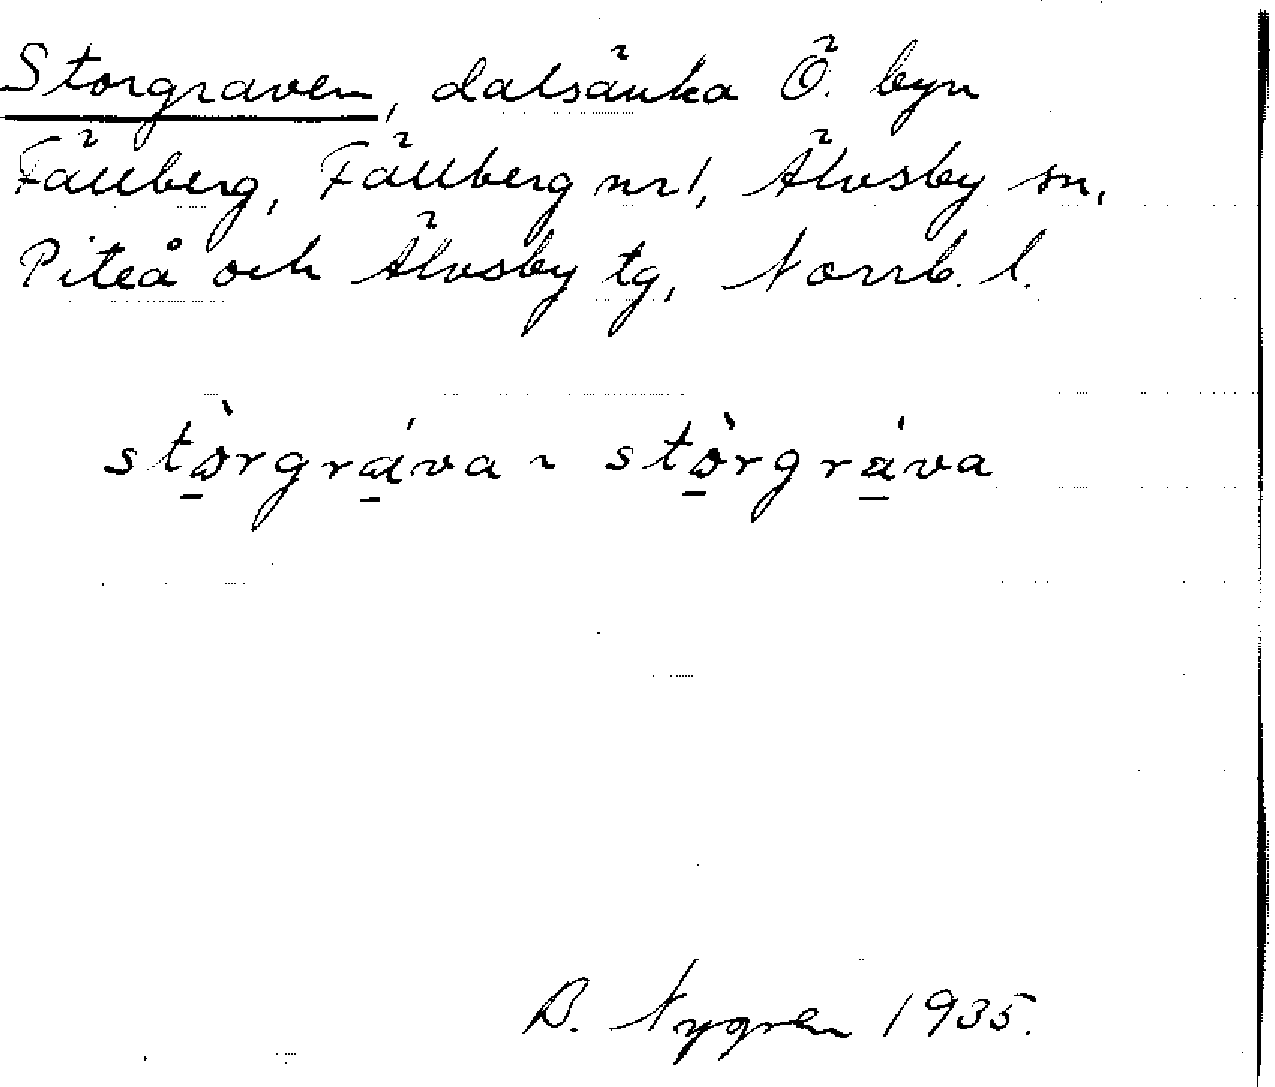 Storgraven, dalsänka Ö. byn
Fällberg, Fällberg nr 1, Älvsby sn,
Piteå och Älvsby tg, Norrb. l.
stò̱rgrá̱va ~ stò̱rgrá̱va
B. Nygren 1935.